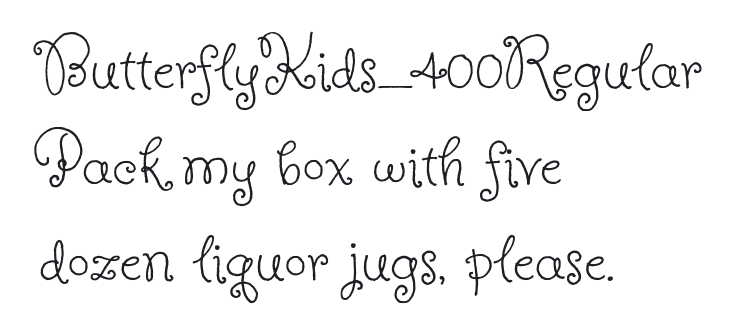 ButterflyKids_400Regular
Pack my box with five
dozen liquor jugs, please.